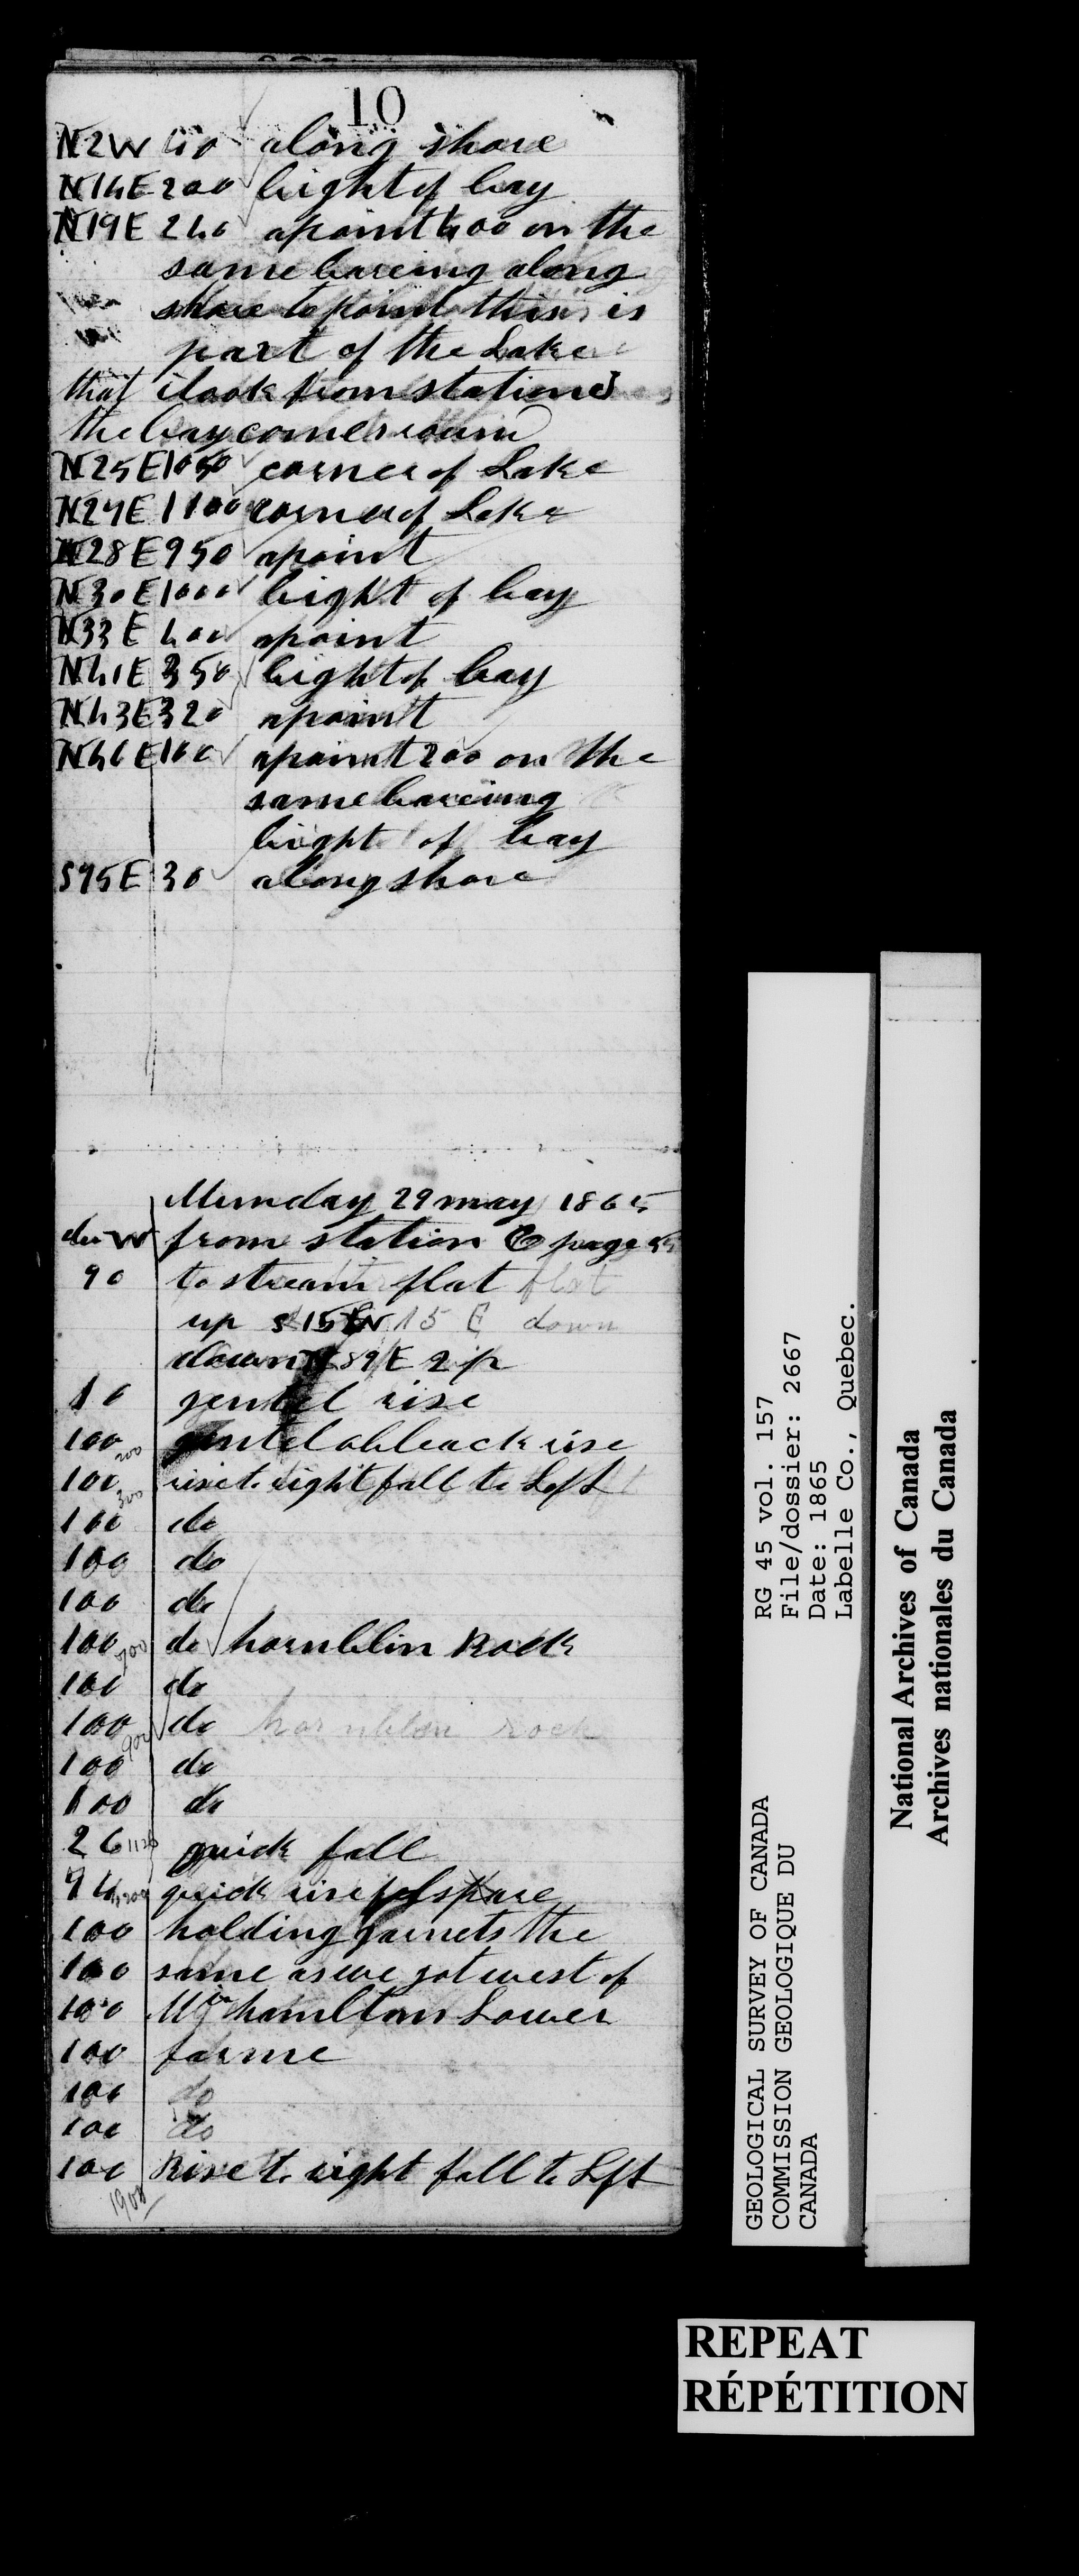 10
N2W 40 along shore
N14E 200 bight of bay
N19E 240 apoint 400 on the
same bareing along
shore to point this is
part of the Lake
that i look from station
the bay comes roun
N25E 1050 corner of Lake
N27E 1100 corner of Lake
N28E 950 apoint
N30E 1000 bight of bay
N33E 400 apoint
N41E 350 bight of bay
N43E 320 apoint
N46E 100 apoint 200 on the
same bareing
bight of bay
S75E 30 along shore
Munday 29 may 1865
du W from station page 55
90 to stream flat flat
up S15W 15 E down
down S9E 2/p
10 gentel rise
100 200 gentel rise
100 300 rise to right fall to Left
100 do
100 do
100 do
100 700 do hornblin Rock
100 do
100 900 do hornblon rock
100 do
100 do
26 1126 quick fall
94 quick rise felspare
100 holding garnets the
100 same as we got west of
100 Mr hamlton Lower
100 farme
100 do
100 do
100 Rise to right fall to Left
1900
GEOLOGICAL SURVEY OF CANADA
COMMISSION GEOLOGIQUE DU
CANADA
RG 45 vol. 157
File/dossier: 2667
Date: 1865
Labelle Co., Quebec.
National Archives of Canada
Archives nationales du Canada
REPEAT
RÉPÉTITION